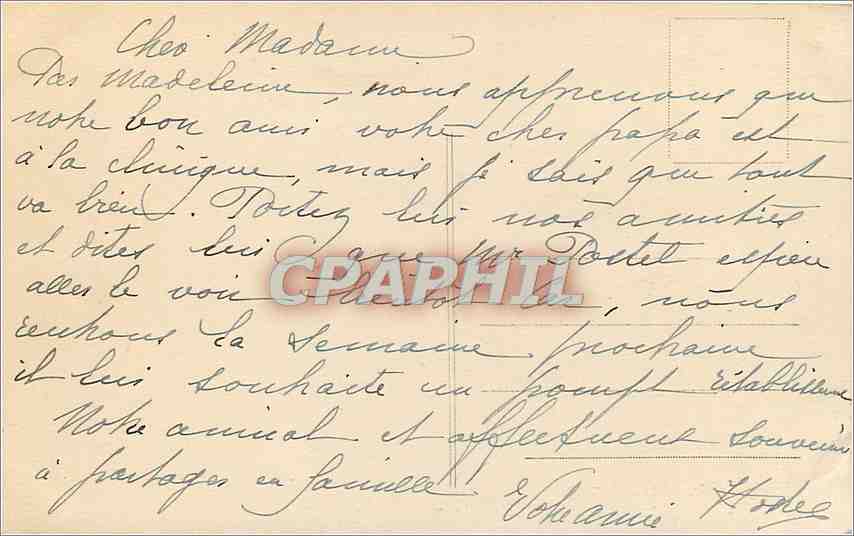 Cher Madame
Par Madeleine, nous apprenons que
notre bon ami votre cher papa est
à la clinique, mais je sais que tout
va bien. Portez lui nos amitiés
et dites lui que Mr Postel espère
aller le voir bientôt, nous
CPAPHIL
rentrons la semaine prochaine
il lui souhaite un prompt rétablissement
Notre amical et affectueux souvenir
à partager en famille
Votre amie